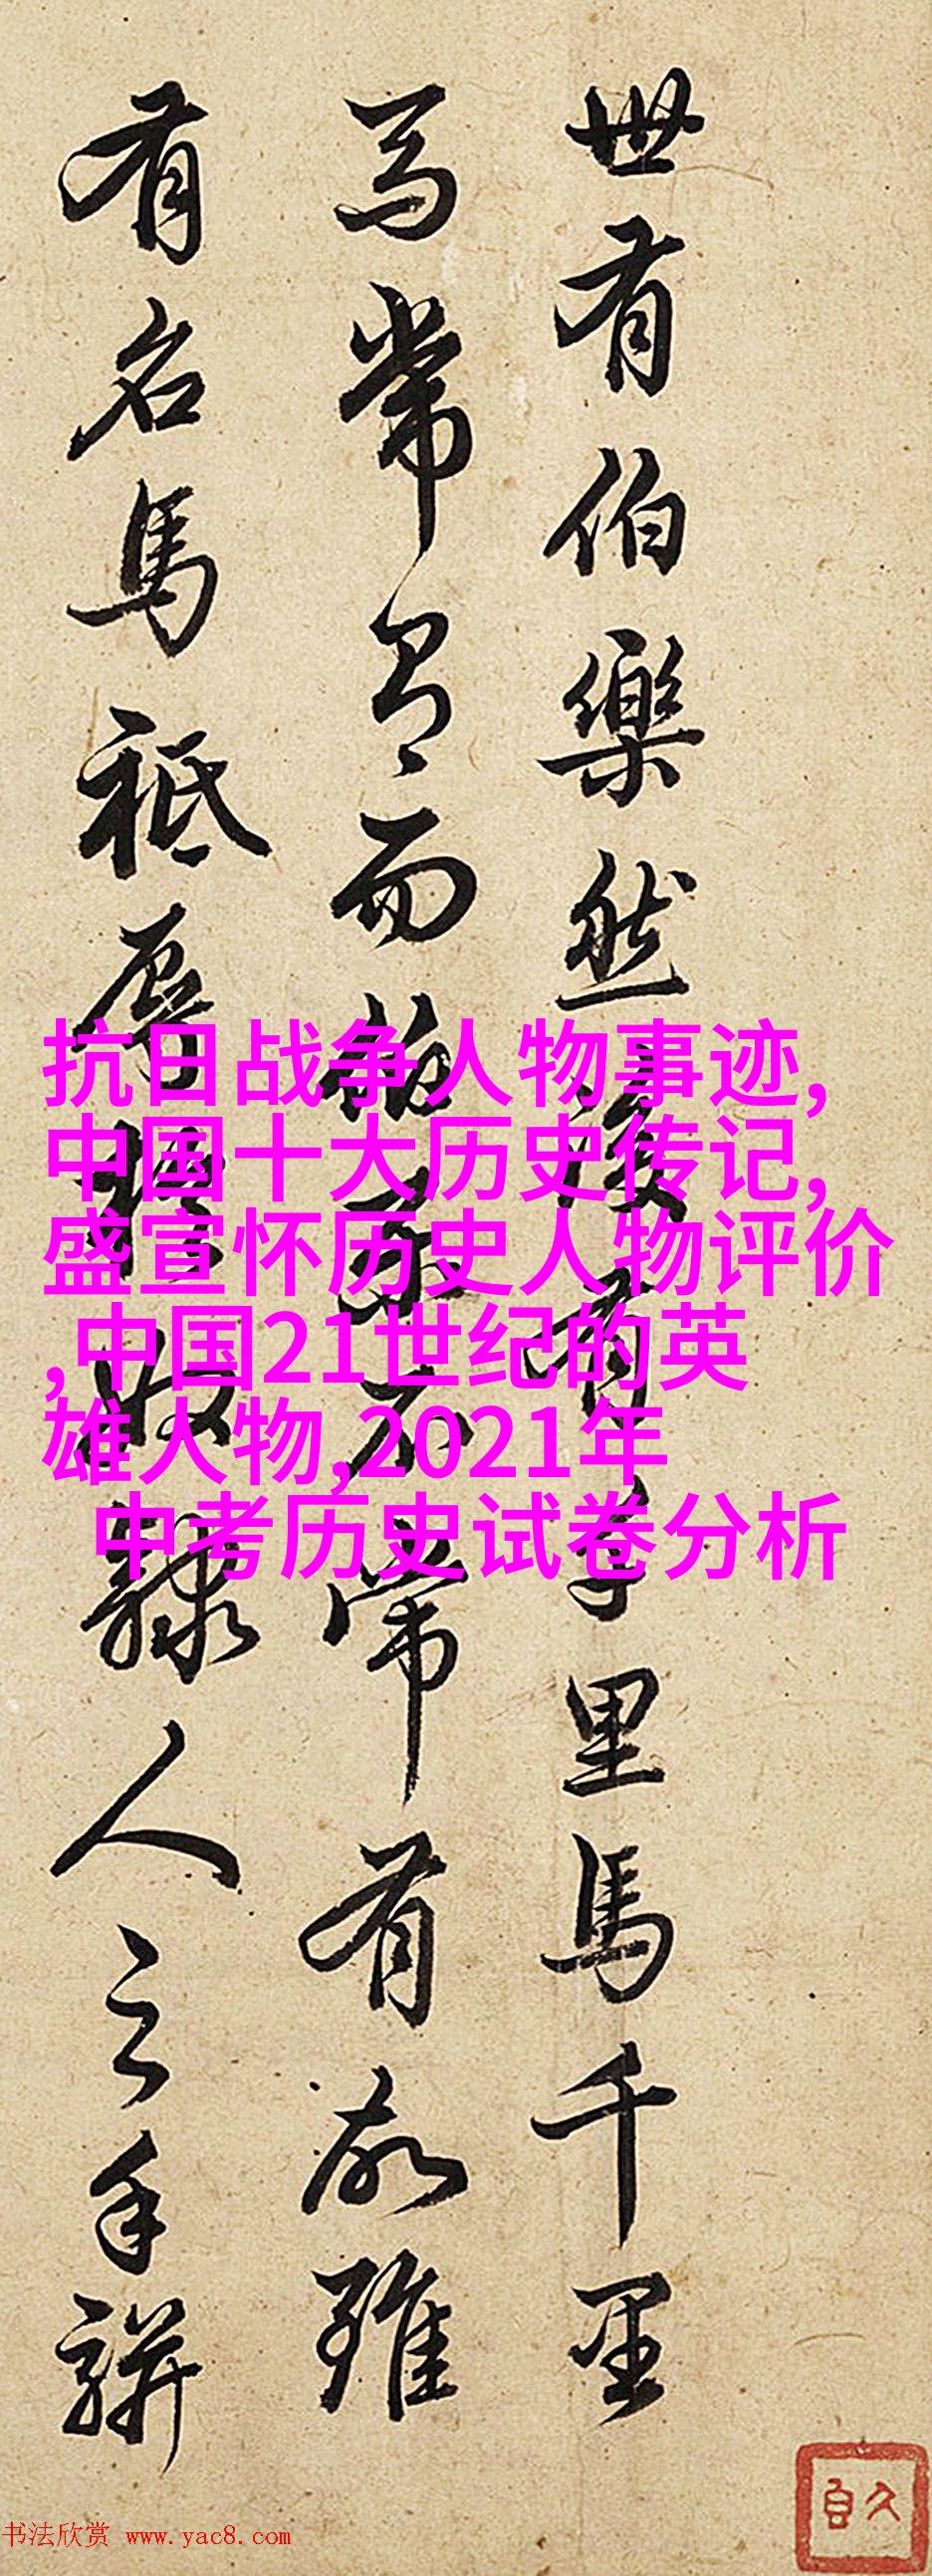 世有伯樂然後有千里馬千里
馬常有而伯樂不常有故雖
有名馬祗辱於奴隸人之手駢
抗日战争人物事迹,
中国十大历史传记,
盛宣怀历史人物评价
,中国21世纪的英
雄人物,2021年
中考历史试卷分析
书法欣赏 www.yac8.com